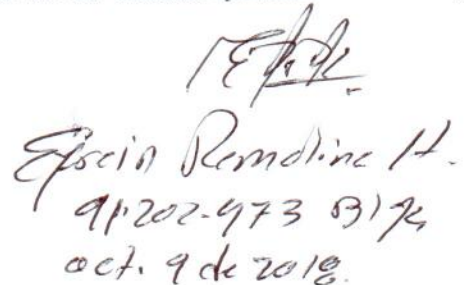 Efrain Remolina H.
91.202.973 B/ga
oct. 9 de 2018